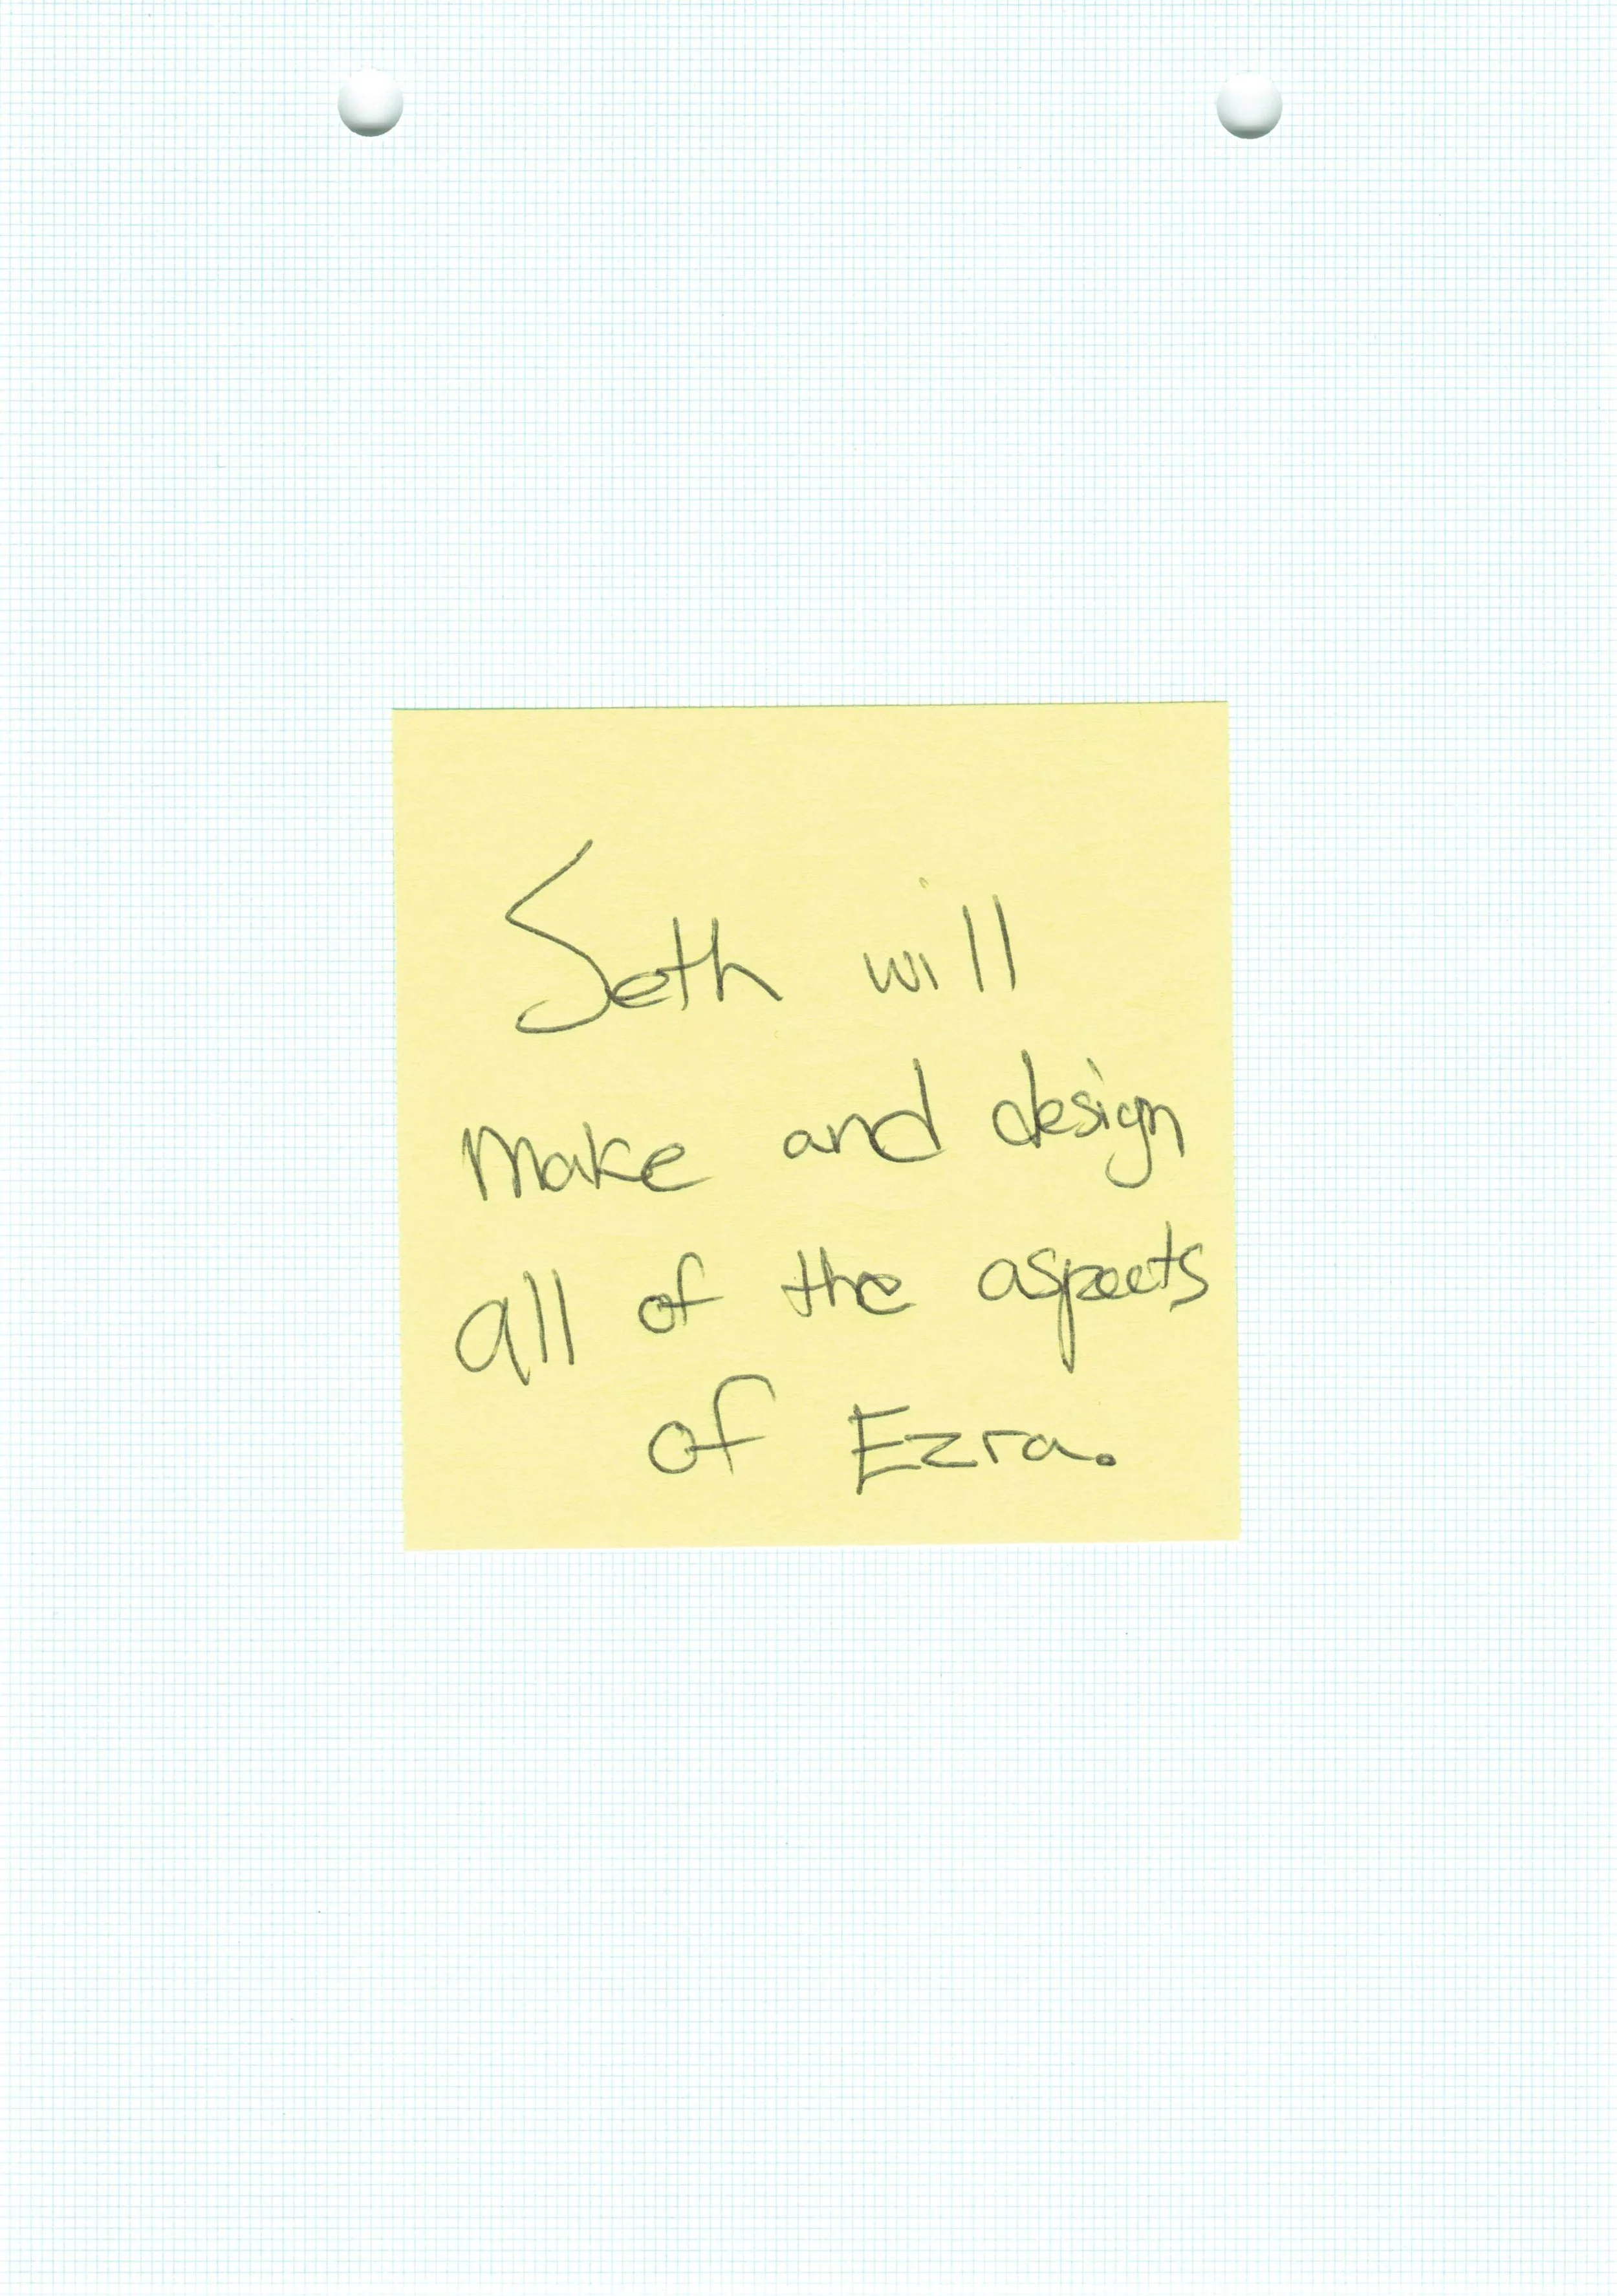 Seth will
make and design
all of the aspects
of Ezra.